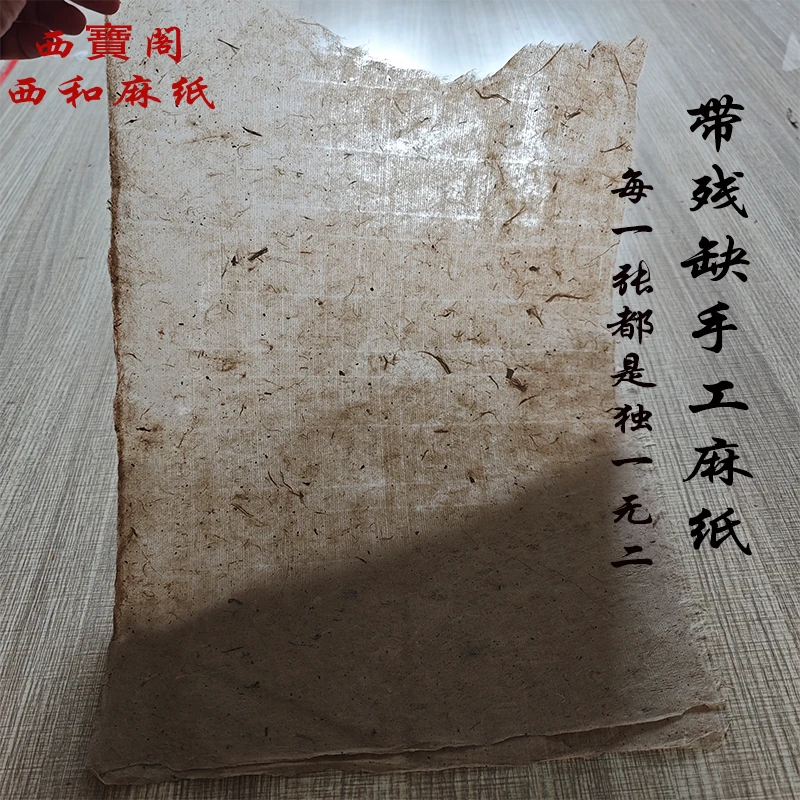 西寶阁
西和麻纸
带残缺手工麻纸
每一张都是独一无二